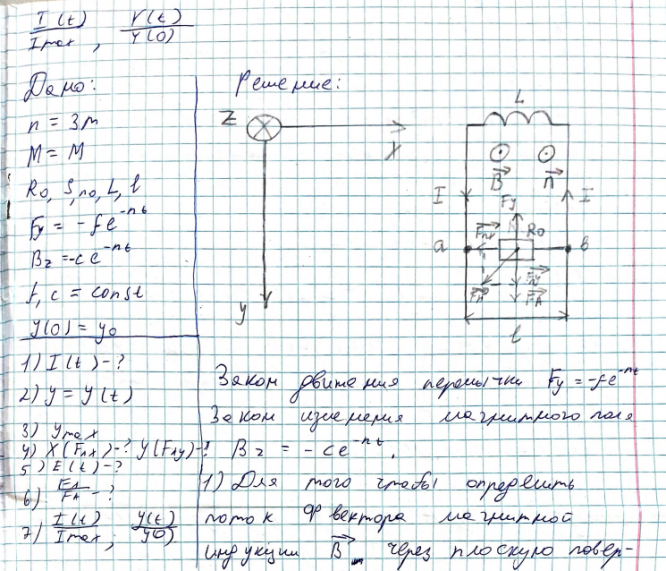 I(t)/Imax , V(t)/Y(0)
Дано:
n = 3m
M = M
R0, S, n0, L, l
Fy = -fe^-nt
Bz = -ce^-nt
f, c = const
y(0) = y0
1) I(t) - ?
2) y = y(t)
3) ymax
4) X(FAX) - ? Y(FAy) - ?
5) E(t) - ?
6) - ?
7) I(t)/Imax ; y(t)/y(0)
Решение:
Z
X
y
L
B n
I I
Fy
R0
a b
l
Закон движения перемычки Fy = -fe^-nt
Закон изменения магнитного поля
Bz = -ce^-nt.
1) Для того чтобы определить
поток Ф вектора магнитной
индукции B через плоскую повер-